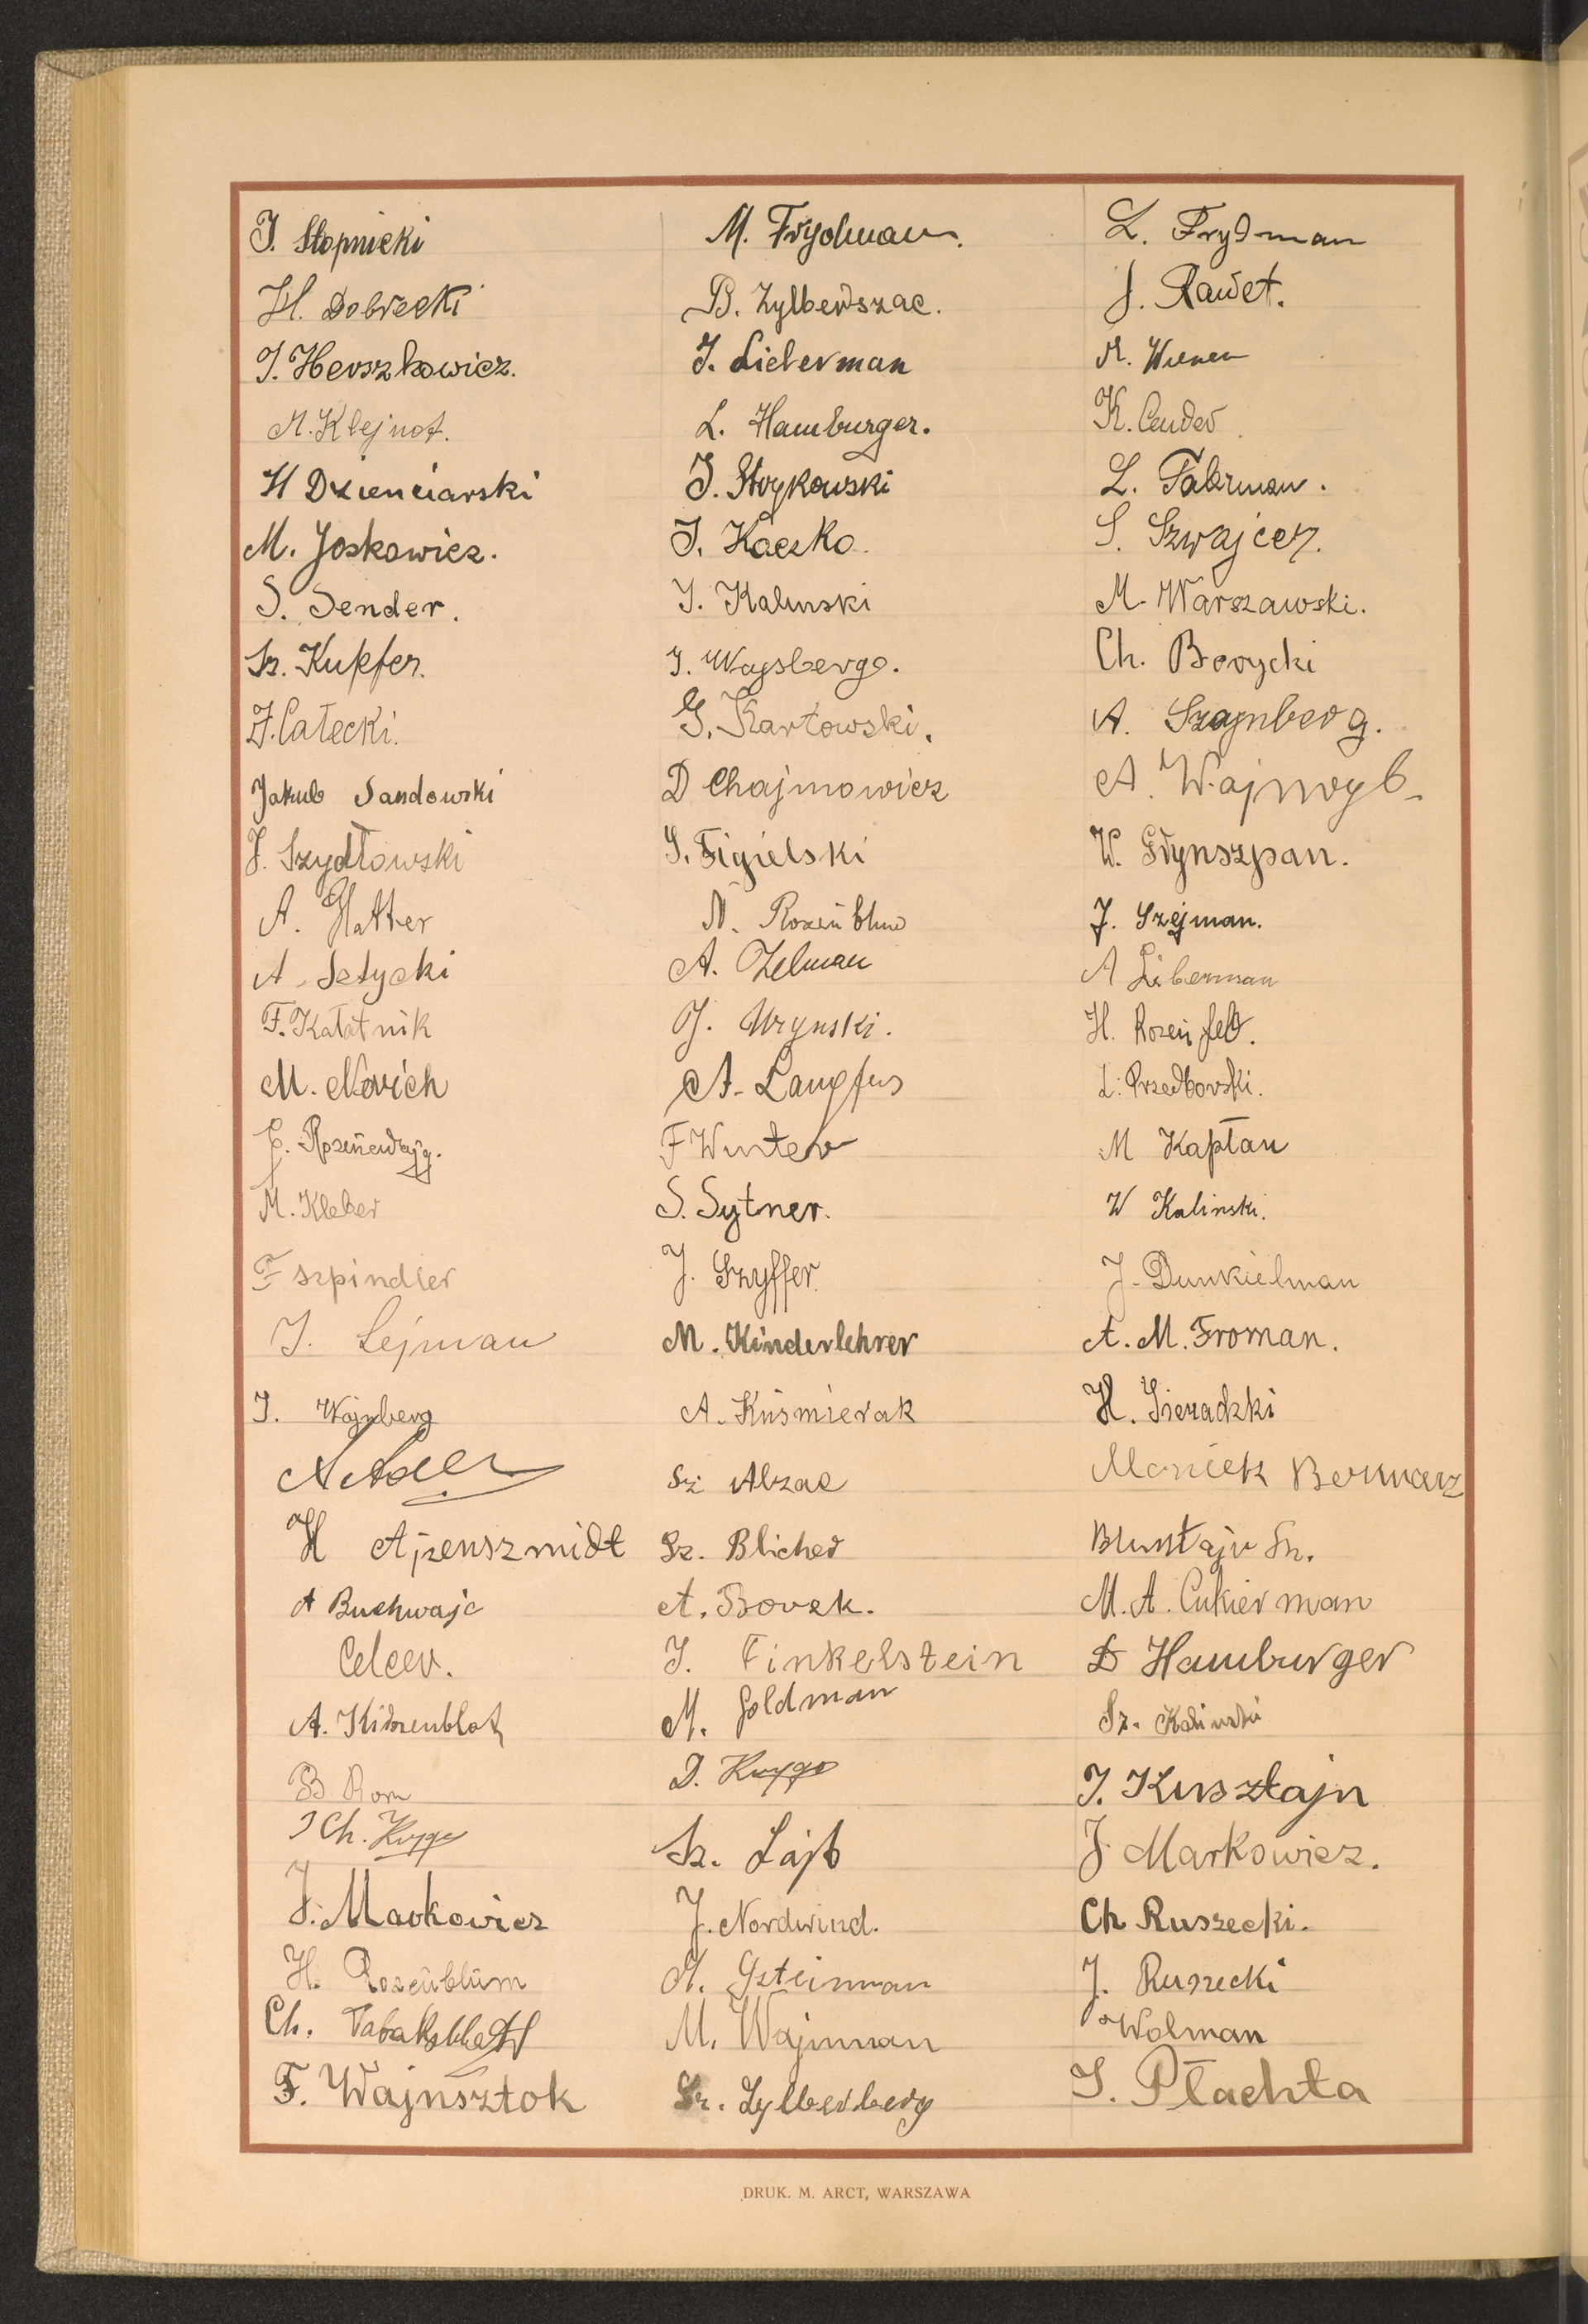 J. Stopnicki
H. Dobrecki
J. Herszkowicz.
M. Klejnot.
H Dzienciarski
M. Joskowicz.
S. Sender.
Sz. Kupfer.
Z. Całecki.
Jakub Sandowski
J. Szydłowski
A. Glatter
A. Setycki
F. Katatnik
M. Norich
M. Kleber
F Szpindler
J. Lejman
J. Wajnberg
N Adler
H Ajzenszmidt
A Buchwajc
Celcer.
A. Kirszenblat
B Rom
J Ch. Kuygo
J. Markowicz
H. Rozenblum
Ch. Tabaksblatt
F. Wajnsztok
M. Frydman.
B. Zylberszac.
J. Lieberman
L. Hamburger.
J. Strykowski
J. Kaczko.
J. Kalinski
J. Wajsberg.
G. Kartowski.
D Chajmowicz
S. Figielski
N. Rozenblum
A. Zelman
J. Urynski.
A. Langfus
F Winter
S. Sytner.
J. Szyffer
M. Kinderlehrer
A. Kusmierak
Sz Alzac
Sz. Blicher
A. Borzk.
J. Finkelstein
M. Goldman
D. Kuygo
Sz. Lajb
J. Nordwind.
M. Gsteinman
M. Wajnman
Sz. Zylberberg
L. Frydman
J. Rawet.
M. Wiener
K. Cender
L. Fakzman.
S. Szwajcer.
M. Warszawski.
Ch. Borycki
A. Szajnberg.
A. Wajnryb
W. Grynszpan.
J. Szejman.
A Liberman
H. Rozenfeld.
L. Przedborski.
M Kapłan
W Kalinski.
J. Dunkielman
A. M. Froman.
H. Sieradzki
Maniek Bernarz
Blumsztajn Sz.
M. A. Cukierman
D Hamburger
Sz. Kalinski
J. Kusztajn
J. Markowicz.
Ch Ruszecki.
J. Ruszecki
Wolman
J. Płachta
DRUK. M. ARCT, WARSZAWA